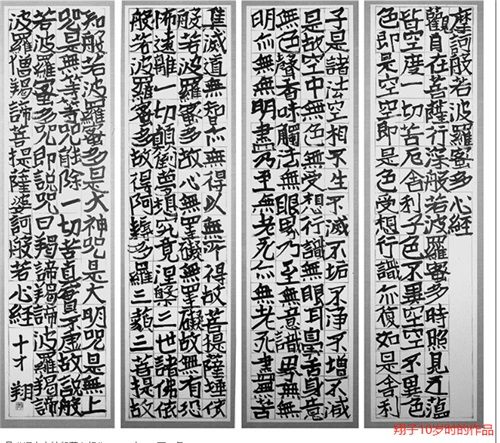 摩訶般若波羅蜜多心經
觀自在菩薩行深般若波羅蜜多時照見五蘊
皆空度一切苦厄舍利子色不異空空不異色
色即是空空即是色受想行識亦復如是舍利
子是諸法空相不生不滅不垢不淨不增不減
是故空中無色無受想行識無眼耳鼻舌身意
無色聲香味觸法無眼界乃至無意識界無無
明亦無無明盡乃至無老死亦無老死盡無苦
集滅道無智亦無得以無所得故菩提薩埵依
般若波羅蜜多故心無罣礙無罣礙故無有恐
怖遠離一切顛倒夢想究竟涅槃三世諸佛依
般若波羅蜜多故得阿耨多羅三藐三菩提故
知般若波羅蜜多是大神咒是大明咒是無上
咒是無等等咒能除一切苦真實不虛故說般
若波羅蜜多咒即說咒曰羯諦羯諦波羅羯諦
波羅僧羯諦菩提薩婆訶般若心經 十才 翔
翔子10岁时的作品